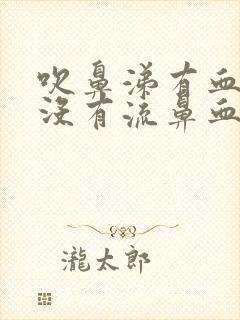 吹鼻涕有血
没有流鼻血
瀧太郎